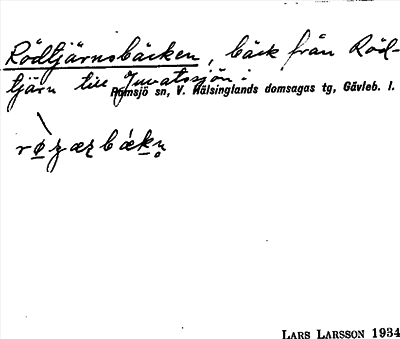 Rödtjärnsbäcken, bäck från Röd-
tjärn till
Ramsjö sn, V. Hälsinglands domsagas tg, Gävleb. l.
LARS LARSSON 1934